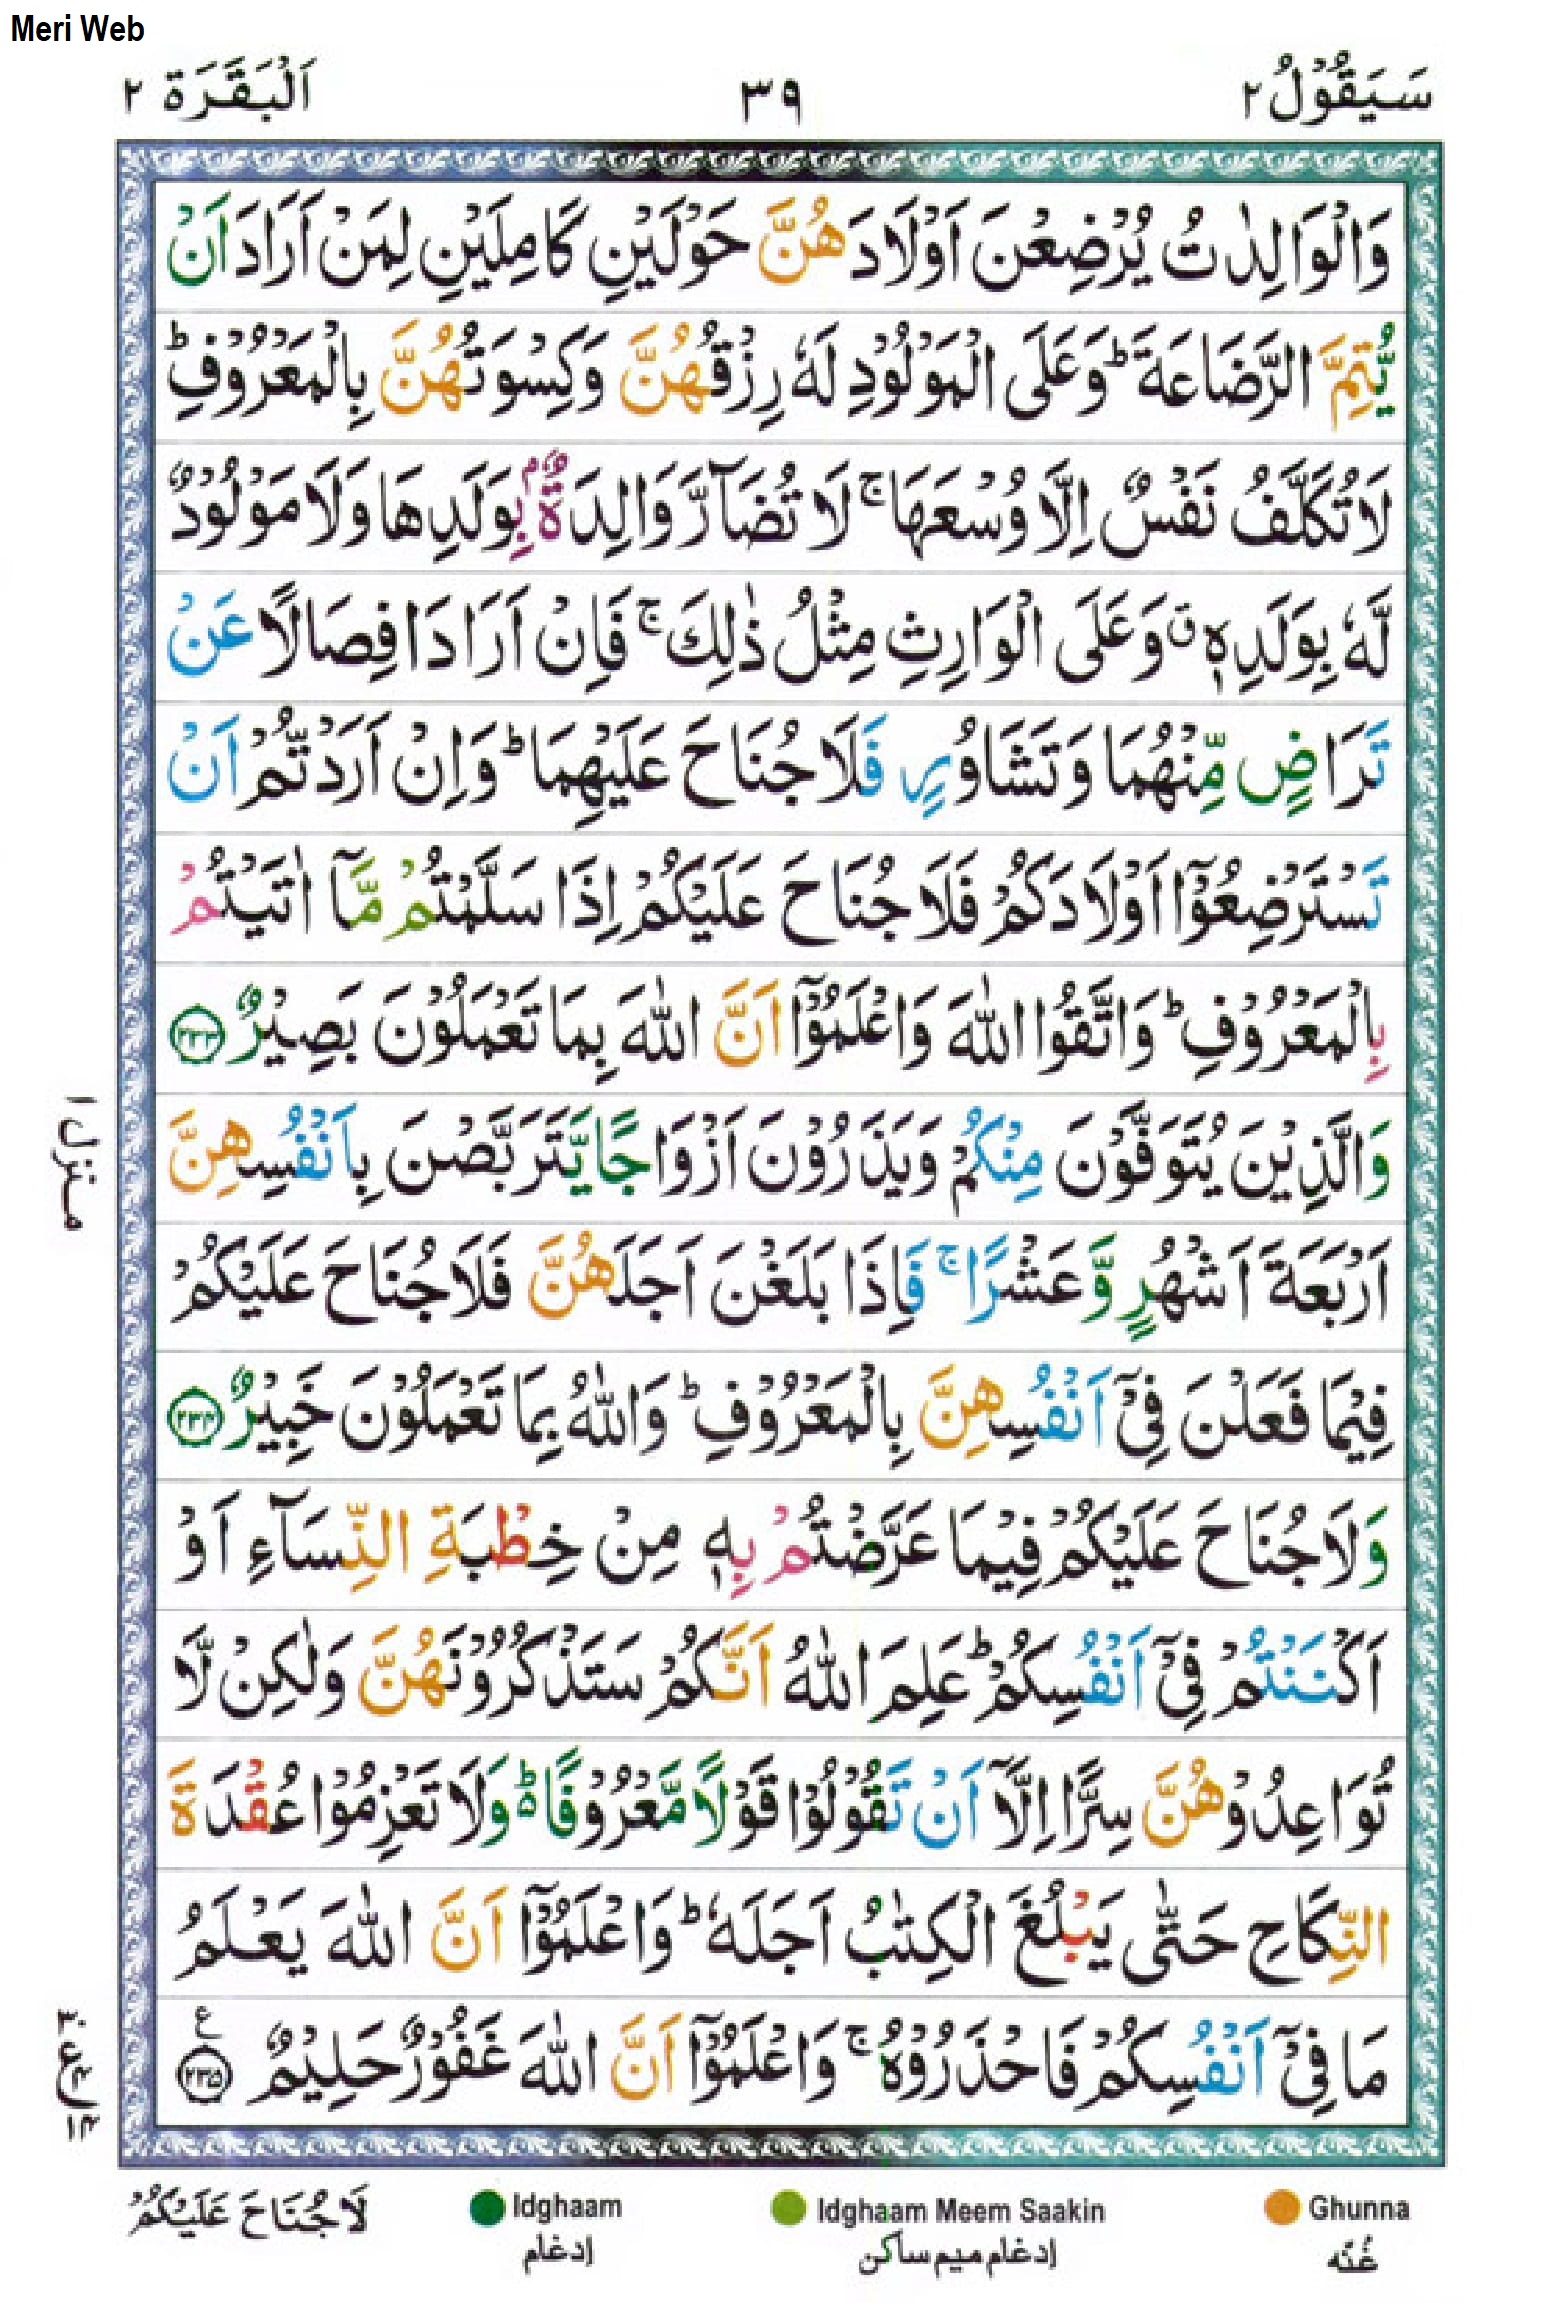 Meri Web
سَيَقُوْلُ ٢
٣٩
اَلْبَقَرَة ٢
وَالْوَالِدٰتُ يُرْضِعْنَ اَوْلَادَهُنَّ حَوْلَيْنِ كَامِلَيْنِ لِمَنْ اَرَادَ اَنْ
يُّتِمَّ الرَّضَاعَةَ ؕ وَعَلَى الْمَوْلُوْدِ لَهٗ رِزْقُهُنَّ وَكِسْوَتُهُنَّ بِالْمَعْرُوْفِ ؕ
لَا تُكَلَّفُ نَفْسٌ اِلَّا وُسْعَهَا ۚ لَا تُضَآرَّ وَالِدَةٌۢ بِوَلَدِهَا وَلَا مَوْلُوْدٌ
لَّهٗ بِوَلَدِهٖ ۗ وَعَلَى الْوَارِثِ مِثْلُ ذٰلِكَ ۚ فَاِنْ اَرَادَا فِصَالًا عَنْ
تَرَاضٍ مِّنْهُمَا وَتَشَاوُرٍ فَلَا جُنَاحَ عَلَيْهِمَا ؕ وَاِنْ اَرَدْتُّمْ اَنْ
تَسْتَرْضِعُوْۤا اَوْلَادَكُمْ فَلَا جُنَاحَ عَلَيْكُمْ اِذَا سَلَّمْتُمْ مَّاۤ اٰتَيْتُمْ
بِالْمَعْرُوْفِ ؕ وَاتَّقُوا اللّٰهَ وَاعْلَمُوْۤا اَنَّ اللّٰهَ بِمَا تَعْمَلُوْنَ بَصِيْرٌ ۝٢٣٣
وَالَّذِيْنَ يُتَوَفَّوْنَ مِنْكُمْ وَيَذَرُوْنَ اَزْوَاجًا يَّتَرَبَّصْنَ بِاَنْفُسِهِنَّ
اَرْبَعَةَ اَشْهُرٍ وَّعَشْرًا ۚ فَاِذَا بَلَغْنَ اَجَلَهُنَّ فَلَا جُنَاحَ عَلَيْكُمْ
فِيْمَا فَعَلْنَ فِيْۤ اَنْفُسِهِنَّ بِالْمَعْرُوْفِ ؕ وَاللّٰهُ بِمَا تَعْمَلُوْنَ خَبِيْرٌ ۝٢٣٤
وَلَا جُنَاحَ عَلَيْكُمْ فِيْمَا عَرَّضْتُمْ بِهٖ مِنْ خِطْبَةِ النِّسَآءِ اَوْ
اَكْنَنْتُمْ فِيْۤ اَنْفُسِكُمْ ؕ عَلِمَ اللّٰهُ اَنَّكُمْ سَتَذْكُرُوْنَهُنَّ وَلٰكِنْ لَّا
تُوَاعِدُوْهُنَّ سِرًّا اِلَّاۤ اَنْ تَقُوْلُوْا قَوْلًا مَّعْرُوْفًا ؕ۬ وَلَا تَعْزِمُوْا عُقْدَةَ
النِّكَاحِ حَتّٰى يَبْلُغَ الْكِتٰبُ اَجَلَهٗ ؕ وَاعْلَمُوْۤا اَنَّ اللّٰهَ يَعْلَمُ
مَا فِيْۤ اَنْفُسِكُمْ فَاحْذَرُوْهُ ۚ وَاعْلَمُوْۤا اَنَّ اللّٰهَ غَفُوْرٌ حَلِيْمٌ ۝٢٣٥
ع
منزل ١
لَا جُنَاحَ عَلَيْكُمْ
Idghaam
ادغام
Idghaam Meem Saakin
ادغام میم ساکن
Ghunna
غُنّه